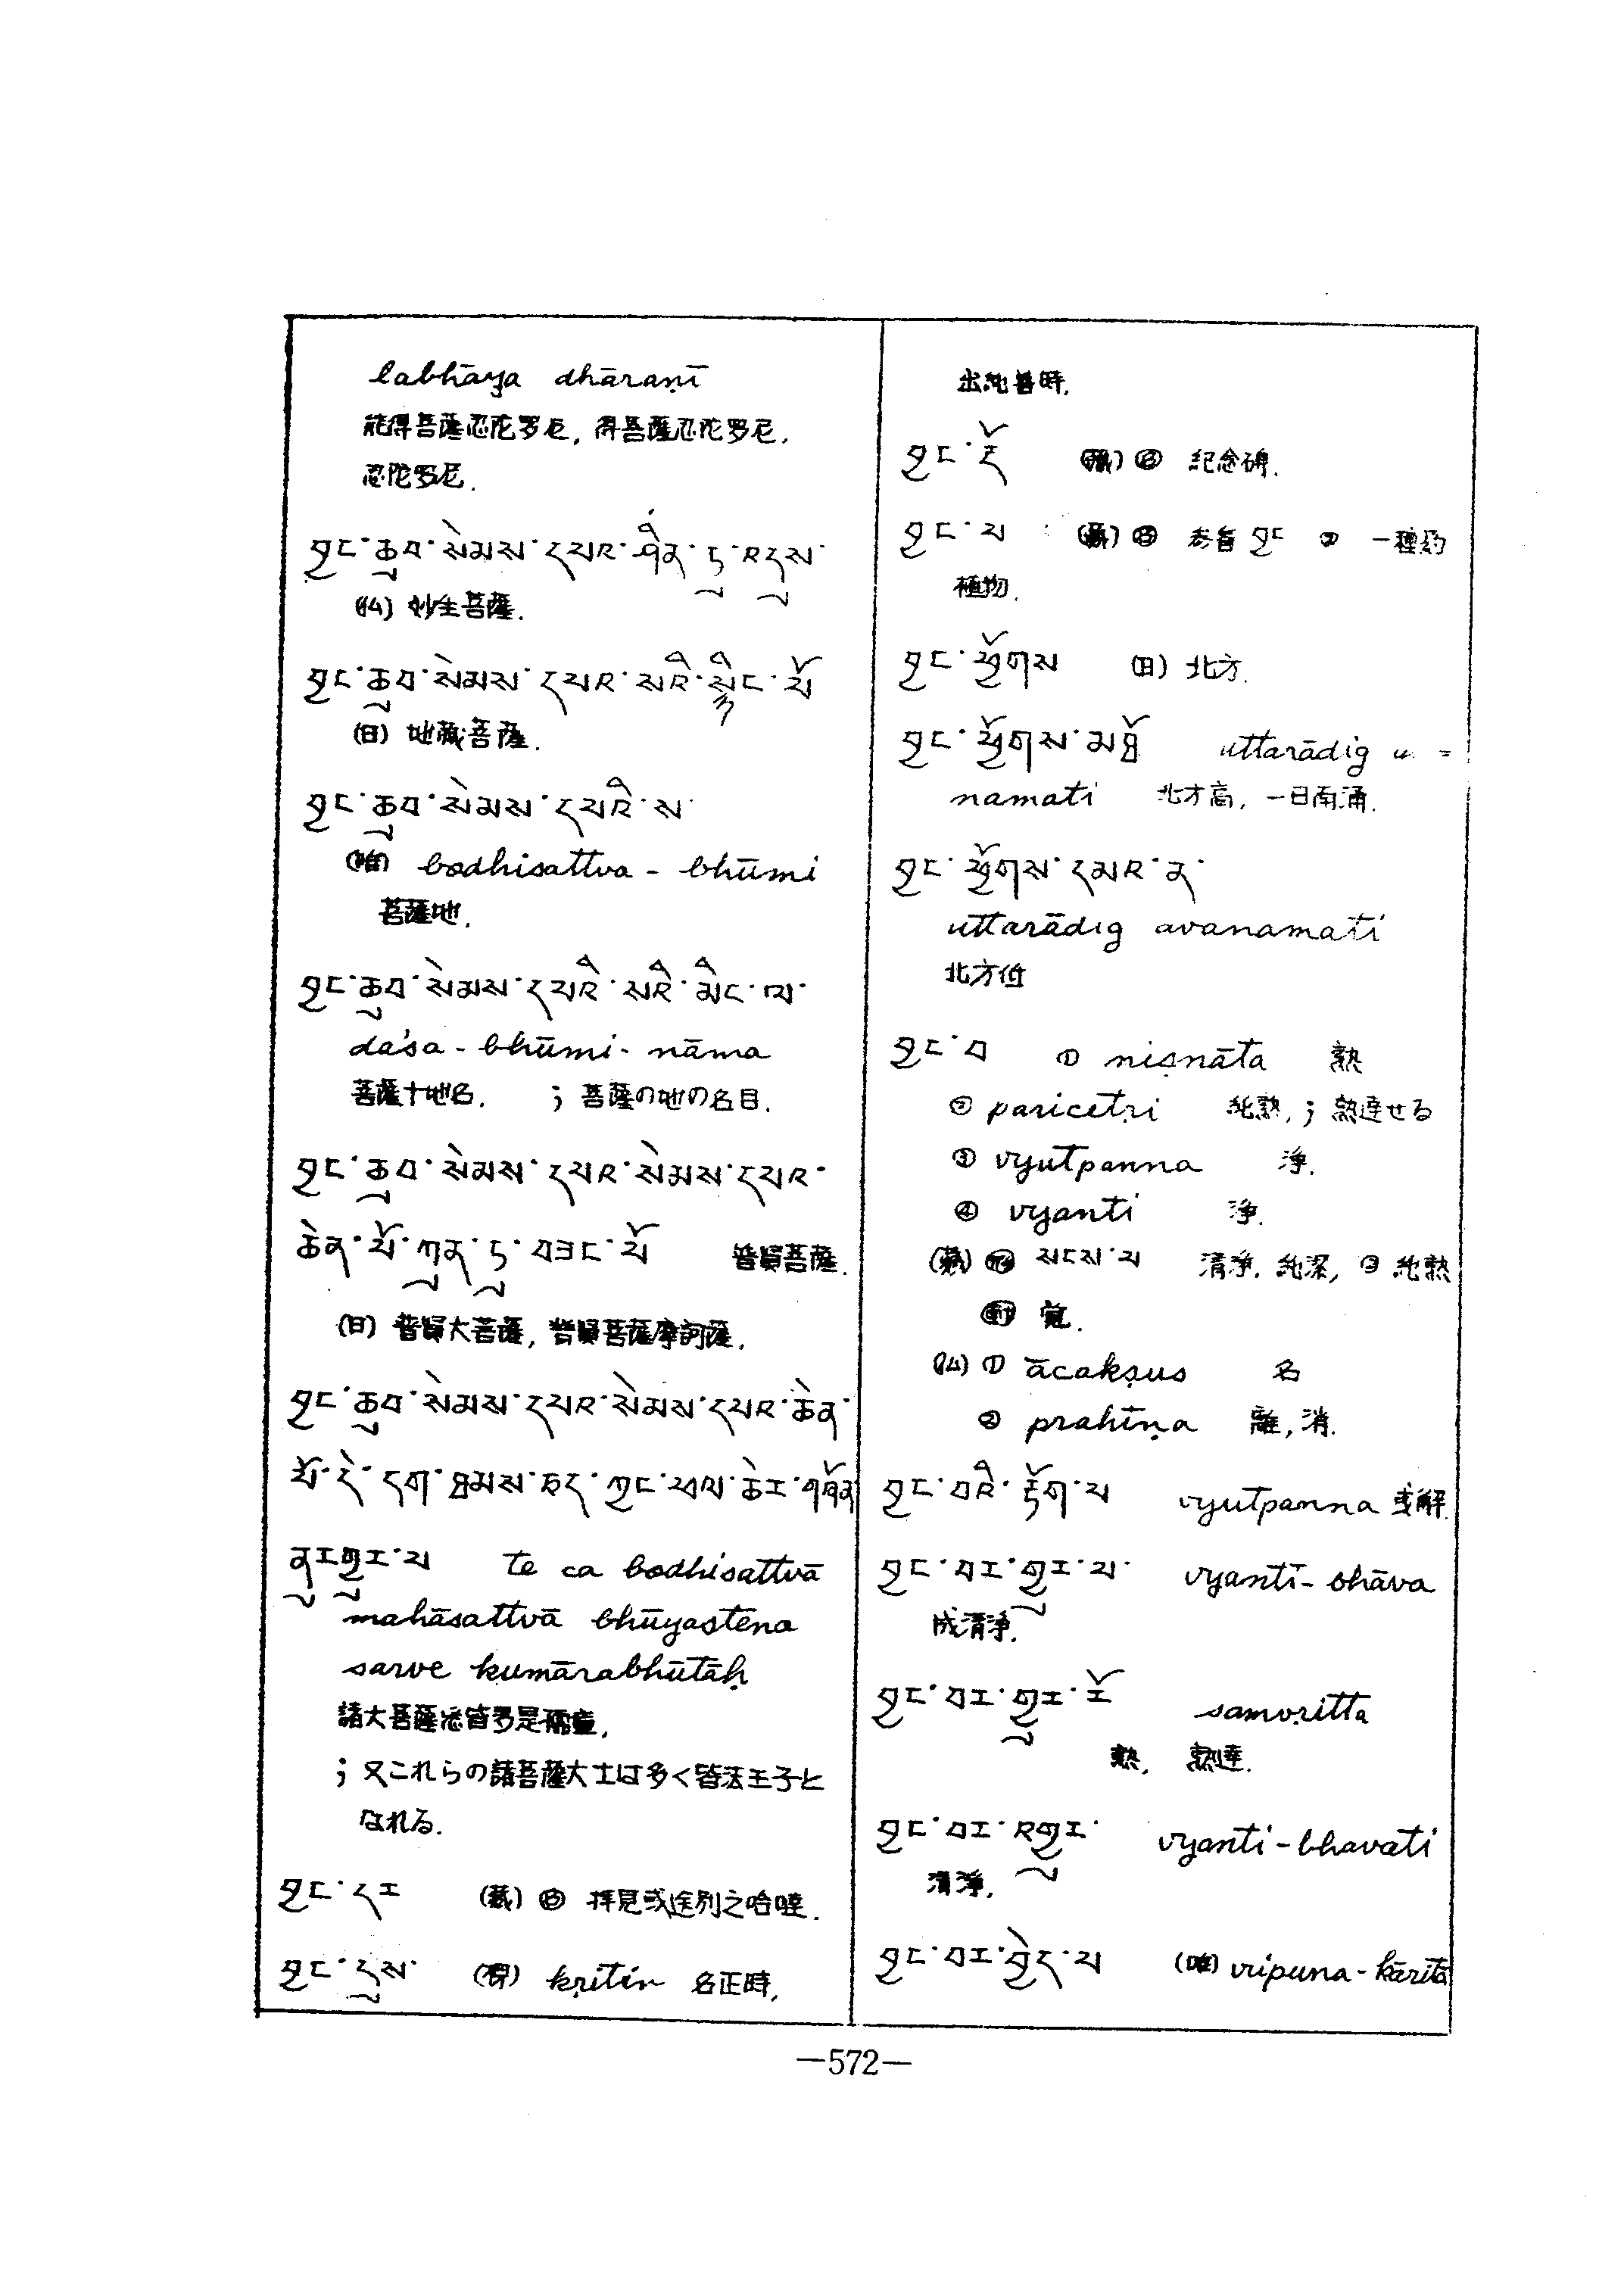 labhāya dhāraṇī
能得菩薩忍陀罗尼, 得菩薩忍陀罗尼,
忍陀罗尼.
བྱང་ཆུབ་སེམས་དཔར་ཤིན་ཏུ་འདུས་
(仏) 妙生菩薩.
བྱང་ཆུབ་སེམས་དཔའ་སའི་སྙིང་པོ
(日) 地藏菩薩.
བྱང་ཆུབ་སེམས་དཔའི་ས་
bodhisattva - bhūmi
菩薩地.
བྱང་ཆུབ་སེམས་དཔའི་སའི་མིང་ལ་
daśa - bhūmi - nāma
菩薩十地名. ; 菩薩の地の名目.
བྱང་ཆུབ་སེམས་དཔའ་སེམས་དཔའ་
ཆེན་པོ་ཀུན་ཏུ་བཟང་པོ 普賢菩薩.
(日) 普賢大菩薩, 普賢菩薩摩訶薩.
བྱང་ཆུབ་སེམས་དཔའ་སེམས་དཔའ་ཆེན་
པོ་དེ་དག་ཐམས་ཅད་ཀྱང་ཕལ་ཆེར་གཞོན
ནུར་གྱུར་པ te ca bodhisattvā
mahāsattvā bhūyastena
sarve kumārabhūtāḥ
諸大菩薩悉皆多是孺童,
; 又これらの諸菩薩大士は多く皆法王子と
なれる.
བྱང་དར (藏) 拝見或送別之哈達.
བྱང་དུས་ kṛitin 名正時,
出純善時.
བྱང་རྡོ 紀念碑.
བྱང་པ 参看 བྱང ② 一種药
植物.
བྱང་ཕྱོགས (日) 北方.
བྱང་ཕྱོགས་མཐོ uttarādig u =
namati 北方高, 一日南涌.
བྱང་ཕྱོགས་དམའ་ན་
uttarādig avanamati
北方低
བྱང་བ ① niṣnāta 熟
② paricetṛi 純熟, ; 熟達せる
③ vyutpanna 淨.
④ vyanti 淨.
(藏) སངས་པ 清淨. 純潔, ② 純熟
(仏) ① ācakṣus 名
② prahīṇa 離, 消.
བྱང་བའི་རྟོག་པ vyutpanna 或解.
བྱང་བར་གྱུར་པ་ vyantī - bhāva
成清淨.
བྱང་བར་གྱུར་ཏོ samvṛitta
熟, 熟達.
བྱང་བར་འགྱུར་ vyanti - bhavati
清淨.
བྱང་བར་བྱེད་པ vipuna - kārita
—572—